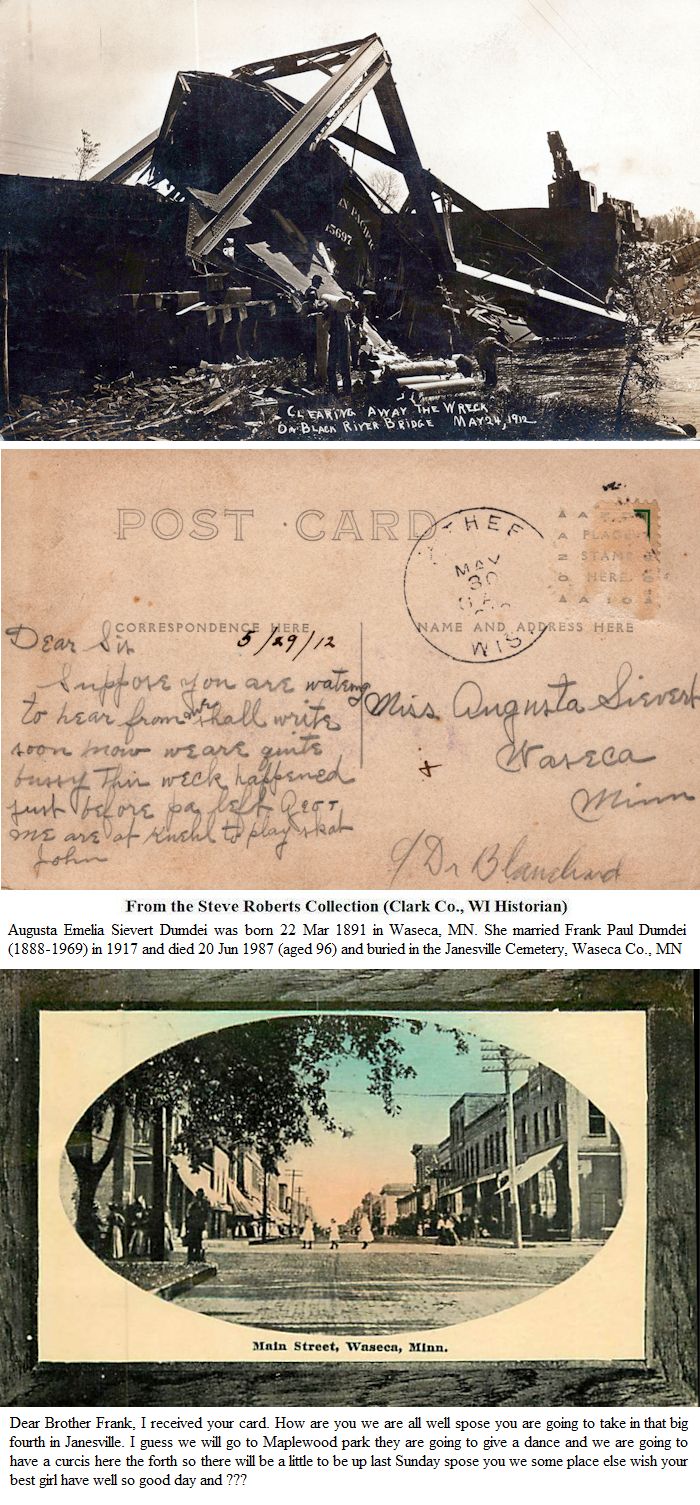 N PACIFIC
15697
CLEARING AWAY THE WRECK
ON BLACK RIVER BRIDGE MAY 24, 1912
POST CARD
THEF
MAY
30
WIS
PLACE
STAMP
HERE
CORRESPONDENCE HERE
NAME AND ADDRESS HERE
Dear Sis 5/29/12
Suppose you are wateng
to hear from me shall write
soon now we are quite
bussy This week happened
just before pa left
we are at Kuehl to play skat
John
Miss Augusta Sievert
Waseca
Minn
c/ Dr Blanchard
From the Steve Roberts Collection (Clark Co., WI Historian)
Augusta Emelia Sievert Dumdei was born 22 Mar 1891 in Waseca, MN. She married Frank Paul Dumdei
(1888-1969) in 1917 and died 20 Jun 1987 (aged 96) and buried in the Janesville Cemetery, Waseca Co., MN
Main Street, Waseca, Minn.
Dear Brother Frank, I received your card. How are you we are all well spose you are going to take in that big
fourth in Janesville. I guess we will go to Maplewood park they are going to give a dance and we are going to
have a curcis here the forth so there will be a little to be up last Sunday spose you we some place else wish your
best girl have well so good day and ???